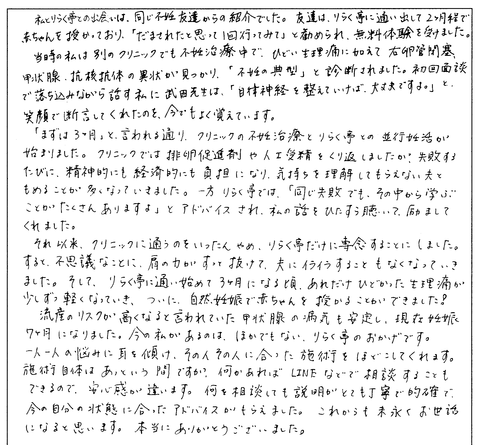 私とりらく亭との出会いは、同じ不妊友達からの紹介でした。友達は、りらく亭に通い出して2ヶ月程で
赤ちゃんを授かっており、「だまされたと思って1回行ってみて」と勧められ、無料体験を受けました。
当時の私は別のクリニックでも不妊治療中で、ひどい生理痛に加えて右卵管閉塞、
甲状腺・抗核抗体の異状が見つかり、「不妊の典型」と診断されました。初回面談
で落ち込みながら話す私に武田先生は、「自律神経を整えていけば、大丈夫ですよ。」と、
笑顔で断言してくれたのを、今でもよく覚えています。
「まずは3ヶ月」と、言われる通り、クリニックの不妊治療とりらく亭との並行妊活が
始まりました。クリニックでは排卵促進剤や人工受精をくり返しましたが、失敗する
たびに、精神的にも経済的にも負担になり、気持ちを理解してもらえない夫と
もめることが多くなっていきました。一方りらく亭では、「同じ失敗でも、その中から学ぶ
ことがたくさんありますよ」とアドバイスされ、私の話をひたすら聴いて、励まして
くれました。
それ以来、クリニックに通うのをいったんやめ、りらく亭だけに専念することにしました。
すると、不思議なことに、肩の力がすっと抜けて、夫にイライラすることもなくなっていき
ました。そして、りらく亭に通い始めて3ヶ月になる頃、あれだけひどかった生理痛が
少しずつ軽くなっていき、ついに、自然妊娠で赤ちゃんを授かることができました!
流産のリスクが高くなると言われていた甲状腺の病気も安定し、現在妊娠
7ヶ月になりました。今の私があるのは、ほかでもない、りらく亭のおかげです。
一人一人の悩みに耳を傾け、その人その人に合った施術をほどこしてくれます。
施術自体はあっという間ですが、何かあればLINEなどで相談することも
できるので、安心感が違います。何を相談しても説明がとても丁寧で的確で、
今の自分の状態に合ったアドバイスがもらえました。これからも末永くお世話
になると思います。本当にありがとうございました。